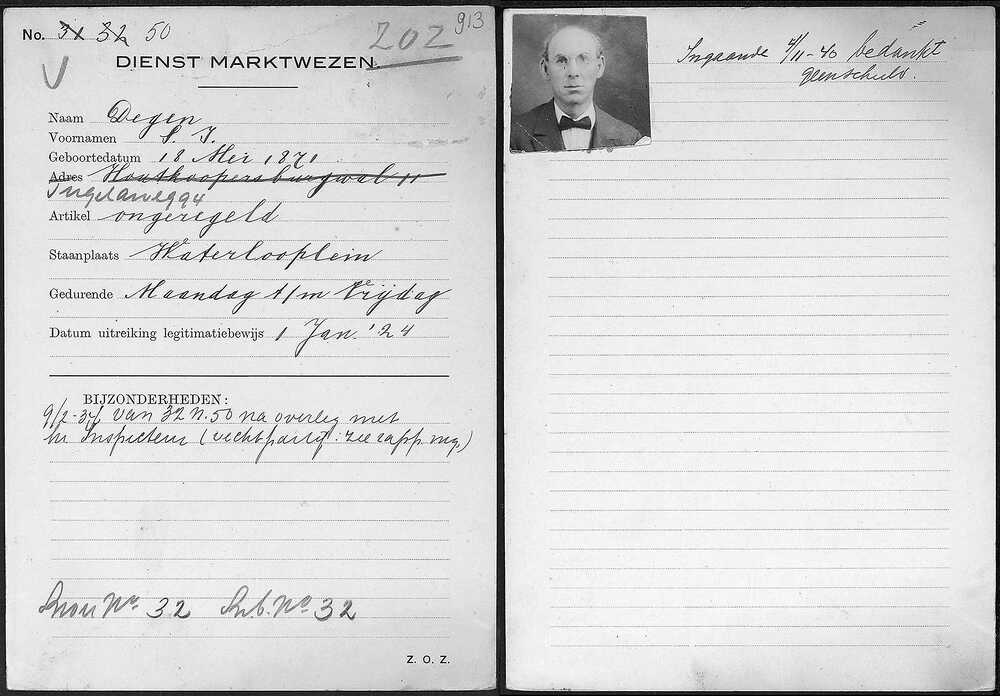 No. 31 32 50
202
913
DIENST MARKTWEZEN.
Naam Degen
Voornamen S. J.
Geboortedatum 18 Mei 1871
Adres Houtkoopersburgwal 11
94
Artikel ongeregeld
Staanplaats Waterlooplein
Gedurende Maandag t/m Vrijdag
Datum uitreiking legitimatiebewijs 1 Jan. '24
BIJZONDERHEDEN:
9/2-37 van 32 n. 50 na overleg met
hr Inspecteur (vechtpartij: zie rapp. mg.)
No. 32 No. 32
Z. O. Z.
Ingaande 4/11-40 bedankt
geen schuld.